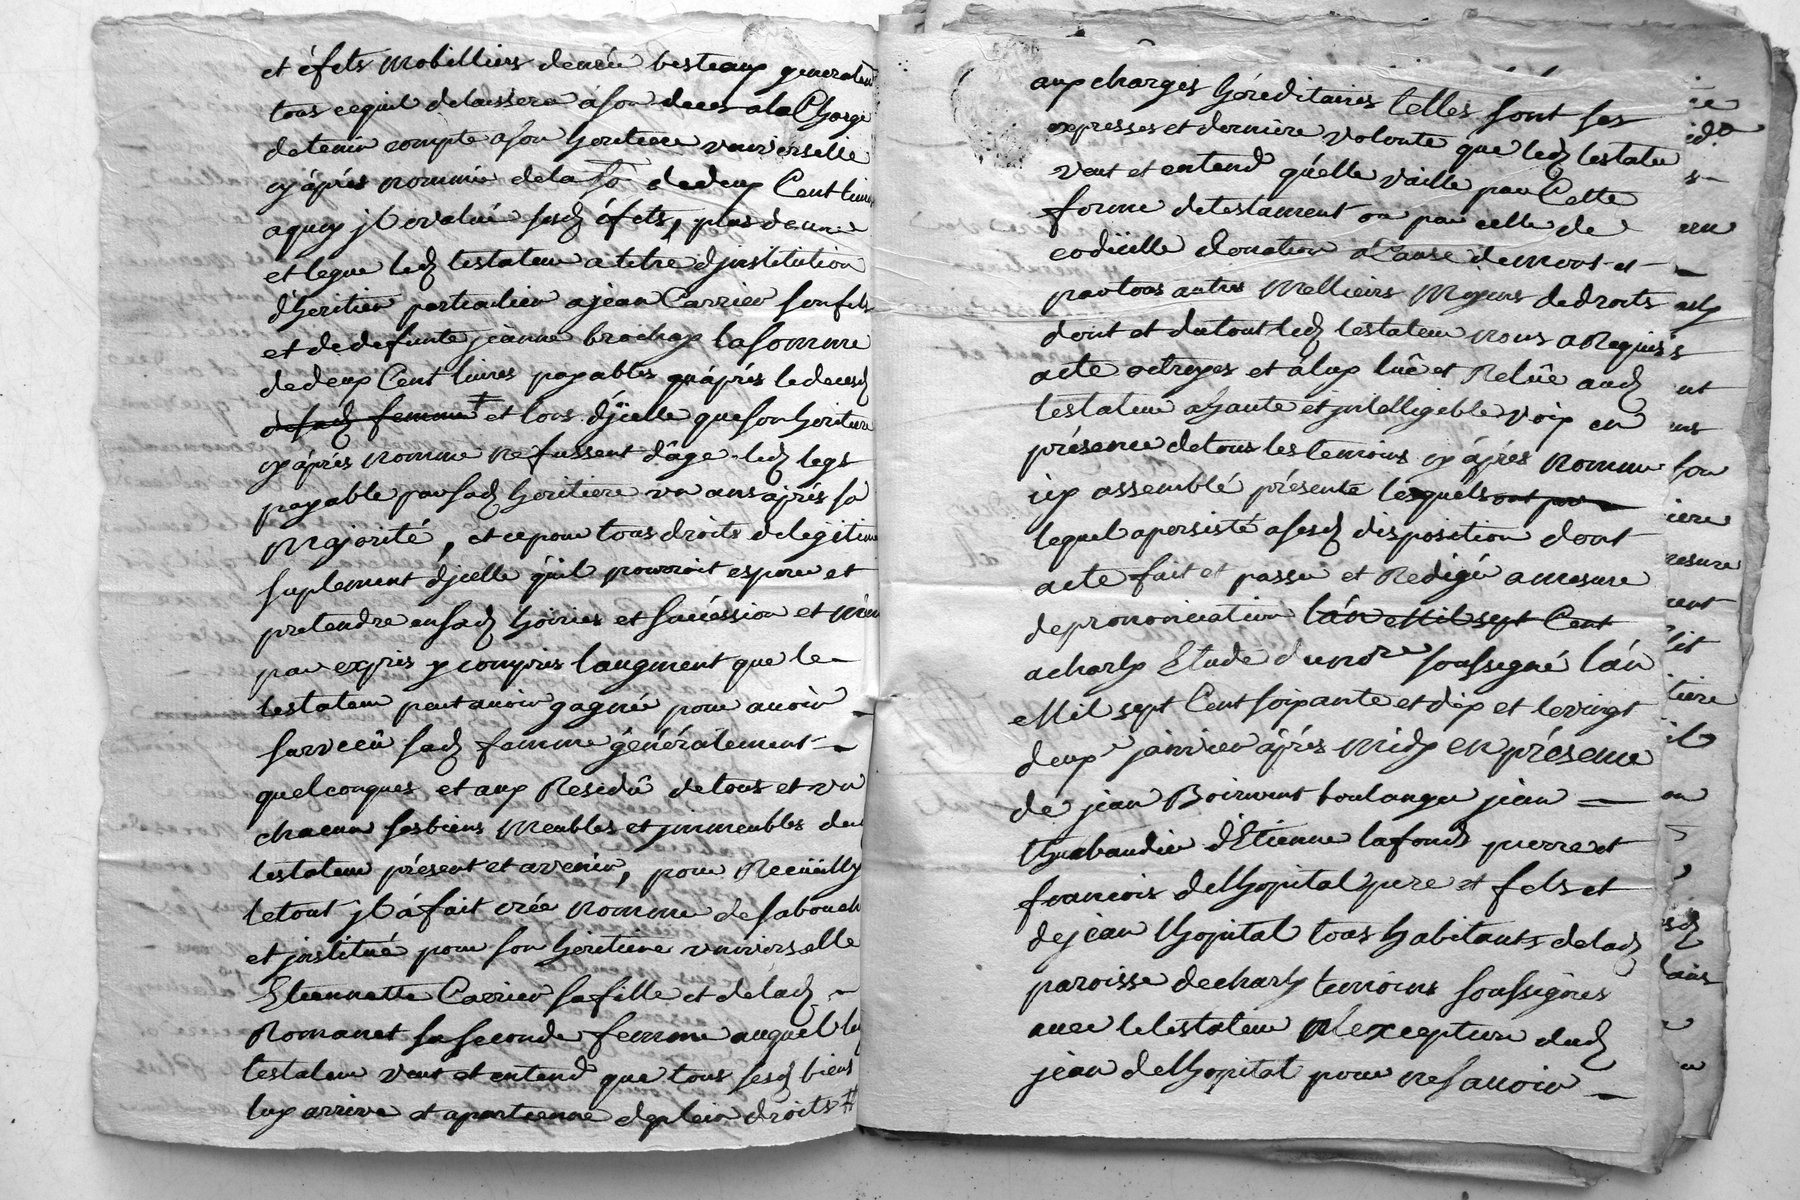 et éfets mobilliers denrée besteaux generalem
tous cequil delaissera à son deces ala Charge
detenir compte a son heritiere universelle
cy aprés nommée dela So dedeux Cent livres
aquoy jl evalué sesd éfets, plus donne
et legue led testateur a titre djnstitution
d'heritier particulier a jean Carrier son fils
et de defunte jeanne brochay la somme
dedeux Cent livres payables qu'aprés le deces
de sad femme et lors djcelle que son heritiere
cy aprés nommé ne fussent d'âge led legs
payable par sad heritiere un ans aprés sa
Majorité, et ce pour tous droits de legitime
suplement djcelle qu'il pourroit esperer et
pretendre en sad hoiries et succéssion et même
par exprés y compris laugment que le
testateur peut avoir gagnée pour avoir
survecu sad femme généralement
quelconques et aux Residû de tous et un
chacun ses biens meubles et jmmeubles dud
testateur présent et avenir, pour Recüeilly
le tout jl á fait crée nomme de sa bouche
et jnstitué pour son heritiere universelle
Etiennette Carrier sa fille et de lad
Romanet sa seconde femme auquel led
testateur veut et entend que tous sesd biens
luy arrive et apartienne de plein droits
aux chârges héréditaires telles sont ses
expresses et derniere volonté que led testateur
veut et entend qu'elle vaille par Cette
forme de testament ou par celle de
codicille donation a Cause de mort et
par tous autres Mellieurs Moyens de droits
dont et du tout led testateur nous a Requis
acte octroyes et à luy lüe et Relüe aud
testateur a haute et jntelligible voix en
présence de tous les temoins cy aprés nommé
icy assemblé présente lesquels ont per
lequel a persisté a sesd disposition dont
acte fait et passé et Redigé a mesure
de prononciation l'an Mil sept Cent
a charly Etude du nore soussigné l'an
Mil sept Cent soixante et dix et le vingt
deux janvier après midy en présence
de jean Boirivent boulanger jean
Thubaudier d'Etienne lafond pierre et
francois delhopital pere et fils et
de jean lhopital tous habitants de lad
paroisse de charly temoins soussignés
avec le testateur a lexception dud
jean delhopital pour ne savoir